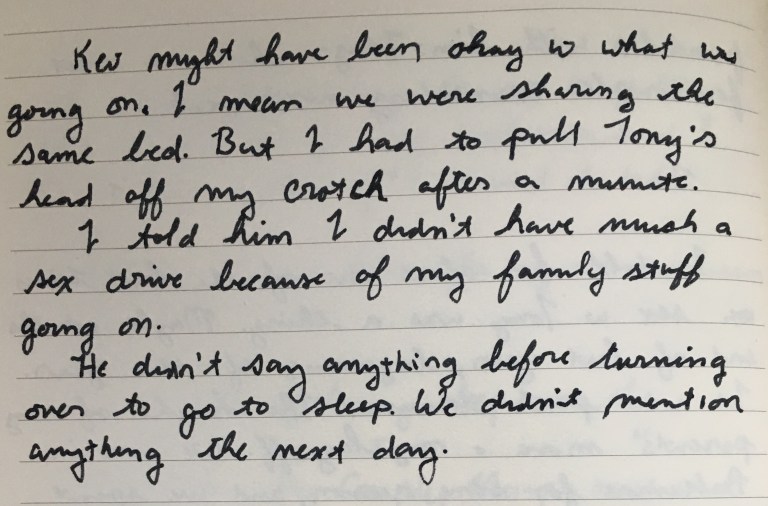 Kev might have been okay w what was
going on. I mean we were sharing the
same bed. But I had to pull Tony's
head off my crotch after a minute.
I told him I didn't have much a
sex drive because of my family stuff
going on.
He didn't say anything before turning
over to go to sleep. We didn't mention
anything the next day.